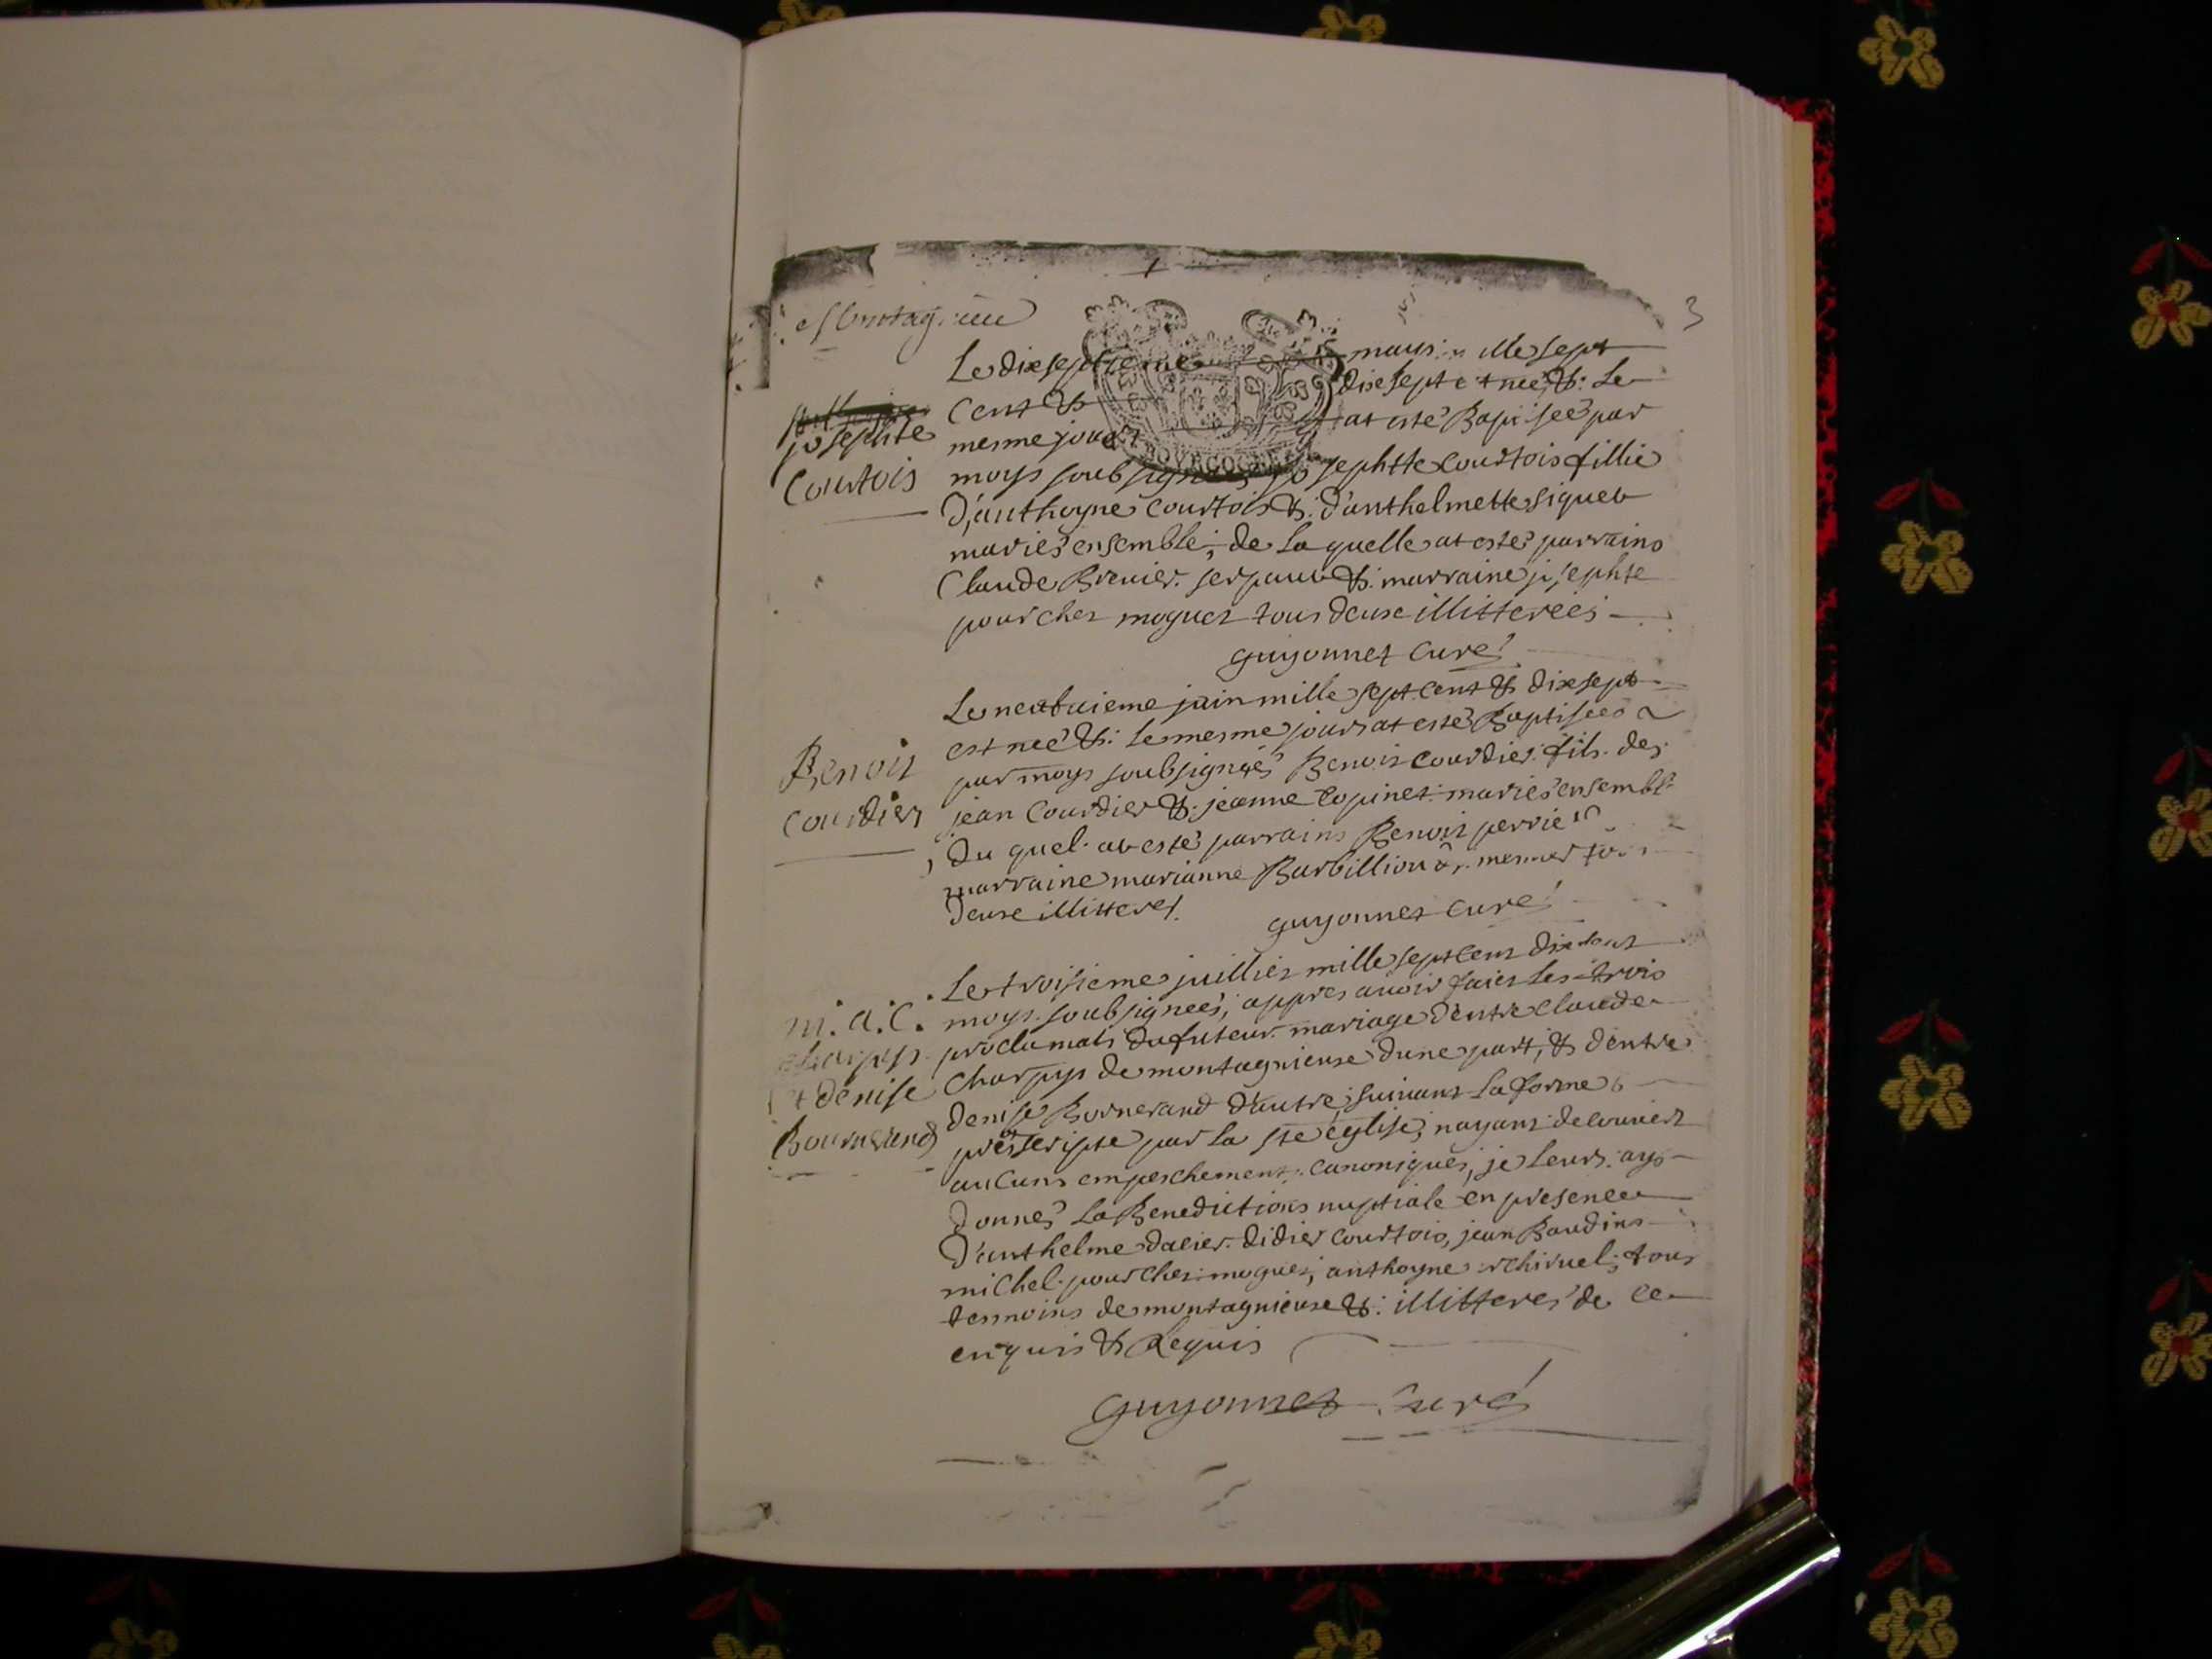 3
Le dixseptieme mars mille sept
cent & dixsept est née &: Le
josephte
mesme jour at esté Baptisée par
Courtois
moys soubsignés josephtte Courtois fillie
d'anthoyne Courtois &: d'anthelmette
mariés ensemble; de la quelle at esté parrains
Claude Brenier &: marraine josephte
pourchez moguet tous deuse illitterées
guyonnet Curé
Le neufuieme juin mille sept Cent & dixsept
est neé &: Le mesme jour at esté Baptiseé
Benoit
par moys soubsignés Benoit Courdier fils de
Courdier
jean Courdier &: jeanne Copinet mariés ensemble
du quel at esté parrains Benoit perrier
marraine marianne Barbilliou
deuse illitteres.
guyonnet Curé
Le troisieme juillies mille sept cent dixsept
m. a. C.
moys soubsigneés, appres auoir faict Les trois
Charpys
proclamats du futeur mariage d'entre Claude
et denise
Charpys de montagnieuse dune part, & d'entre
Bournerand
denise Bornerand d'autre, suiuant La forme
prescripte par La ste église, nayant decouuert
aucuns empeschement canoniques, je Leurs ays
donnés La Benedictions nuptiale en presence
D'anthelme dacier didier Courtois, jean Baudins
michel pourchez moguet, anthoyne tous
tesmoins de montagnieuse &: illitteres de ce
enquis & Requis
guyonnet Curé